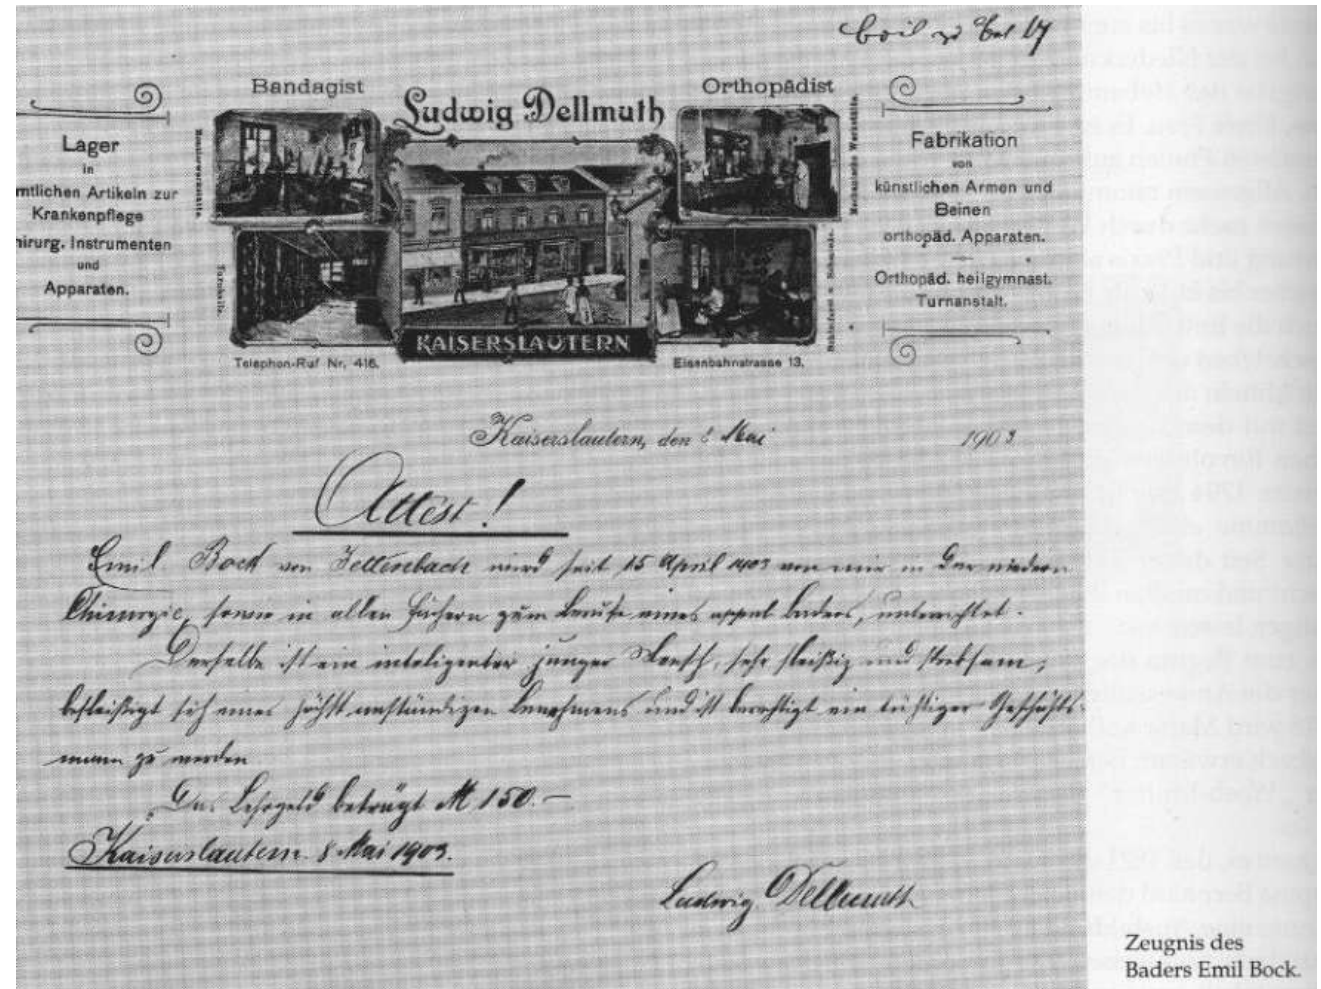 Beil zu Bel 17
Bandagist
Orthopädist
Ludwig Dellmuth
Lager
in
mtlichen Artikeln zur
Krankenpflege
hirurg. Instrumenten
und
Apparaten.
Turnhalle.
Mechanische Werkstätte.
Fabrikation
von
künstlichen Armen und
Beinen
orthopäd. Apparaten.
Orthopäd. heilgymnast.
Turnanstalt.
KAISERSLAUTERN
Telephon-Ruf Nr. 416.
Eisenbahnstrasse 13.
Kaiserslautern, den 8 Mai 1903
Attest!
Emil Bock von wird seit 15 April 1903 von mir in der niedern
Chirurgie, sowie in allen Fächern zum Berufe eines appr. Baders, unterrichtet.
Derselbe ist ein inteligenter junger Mensch, sehr fleißig und strebsam,
befleißigt sich eines höchst anständigen Benehmens und ist berechtigt ein tüchtiger Geschäfts-
mann zu werden
Das Lehrgeld beträgt M 150.–
Kaiserslautern 8 Mai 1903.
Ludwig Dellmuth
Zeugnis des
Baders Emil Bock.